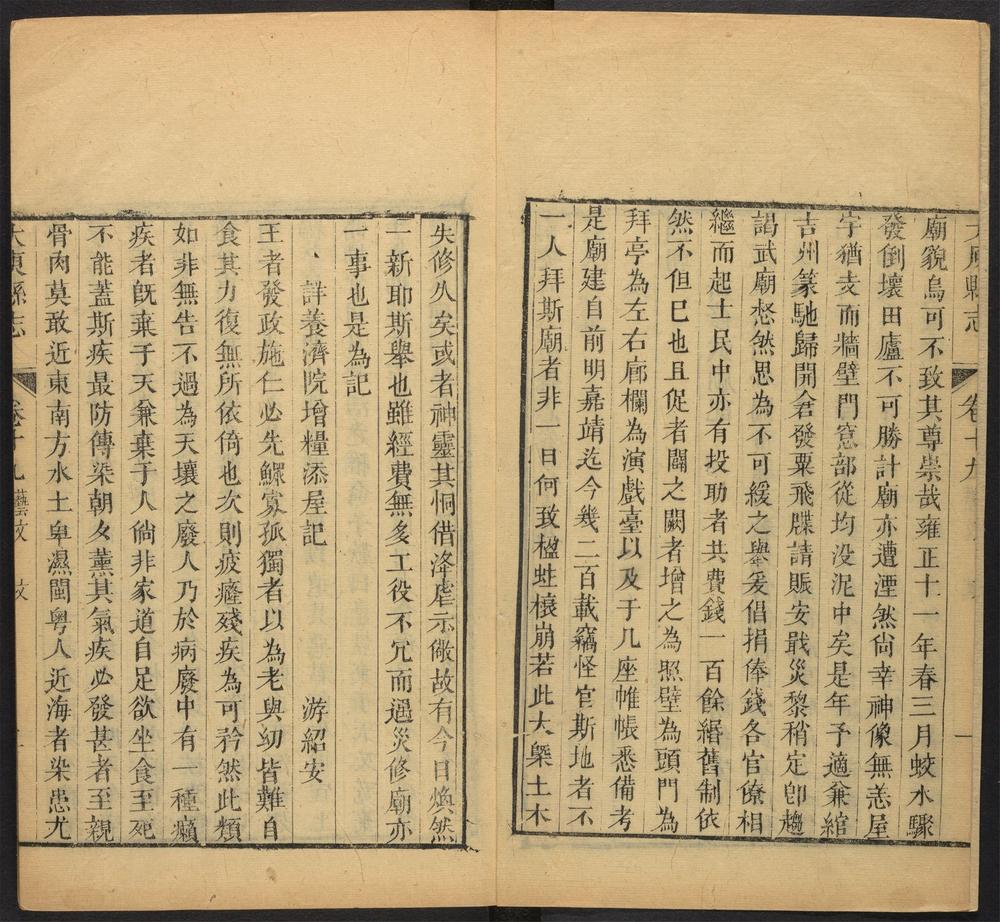 大庾縣志 卷十九
廟貌烏可不致其尊崇哉雍正十一年春三月蛟水驟
發倒壞田廬不可勝計廟亦遭湮然尙幸神像無恙屋
宇猶支而牆壁門窓部從均没泥中矣是年予適兼綰
吉州篆馳歸開倉發粟飛牒請賑安戢災黎稍定卽趨
謁武廟愁然思為不可緩之舉爰倡捐俸錢各官僚相
繼而起士民中亦有投助者共費錢一百餘緡舊制依
然不但巳也且促者闢之闕者增之為照壁為頭門為
拜亭為左右廊欄為演戲臺以及于几座帷帳悉備考
是廟建自前明嘉靖迄今幾二百載竊怪官斯地者不
一人拜斯廟者非一日何致楹蛀榱崩若此大槩土木
失修久矣或者神靈其恫借洚虐示儆故有今日煥然
一新耶斯舉也雖經費無多工役不冗而遇災修廟亦
一事也是為記
詳養濟院增糧添屋記 游紹安
王者發政施仁必先鰥寡孤獨者以為老與幼皆難自
食其力復無所依倚也次則疲癃殘疾為可矜然此類
如非無告不過為天壤之廢人乃於病廢中有一種癩
疾者旣棄于天兼棄于人倘非家道自足欲坐食至死
不能蓋斯疾最防傳染朝夕薰其氣疾必發甚者至親
骨肉莫敢近東南方水土卑濕閩粵人近海者染患尤
大庾縣志 卷十九藝文 文